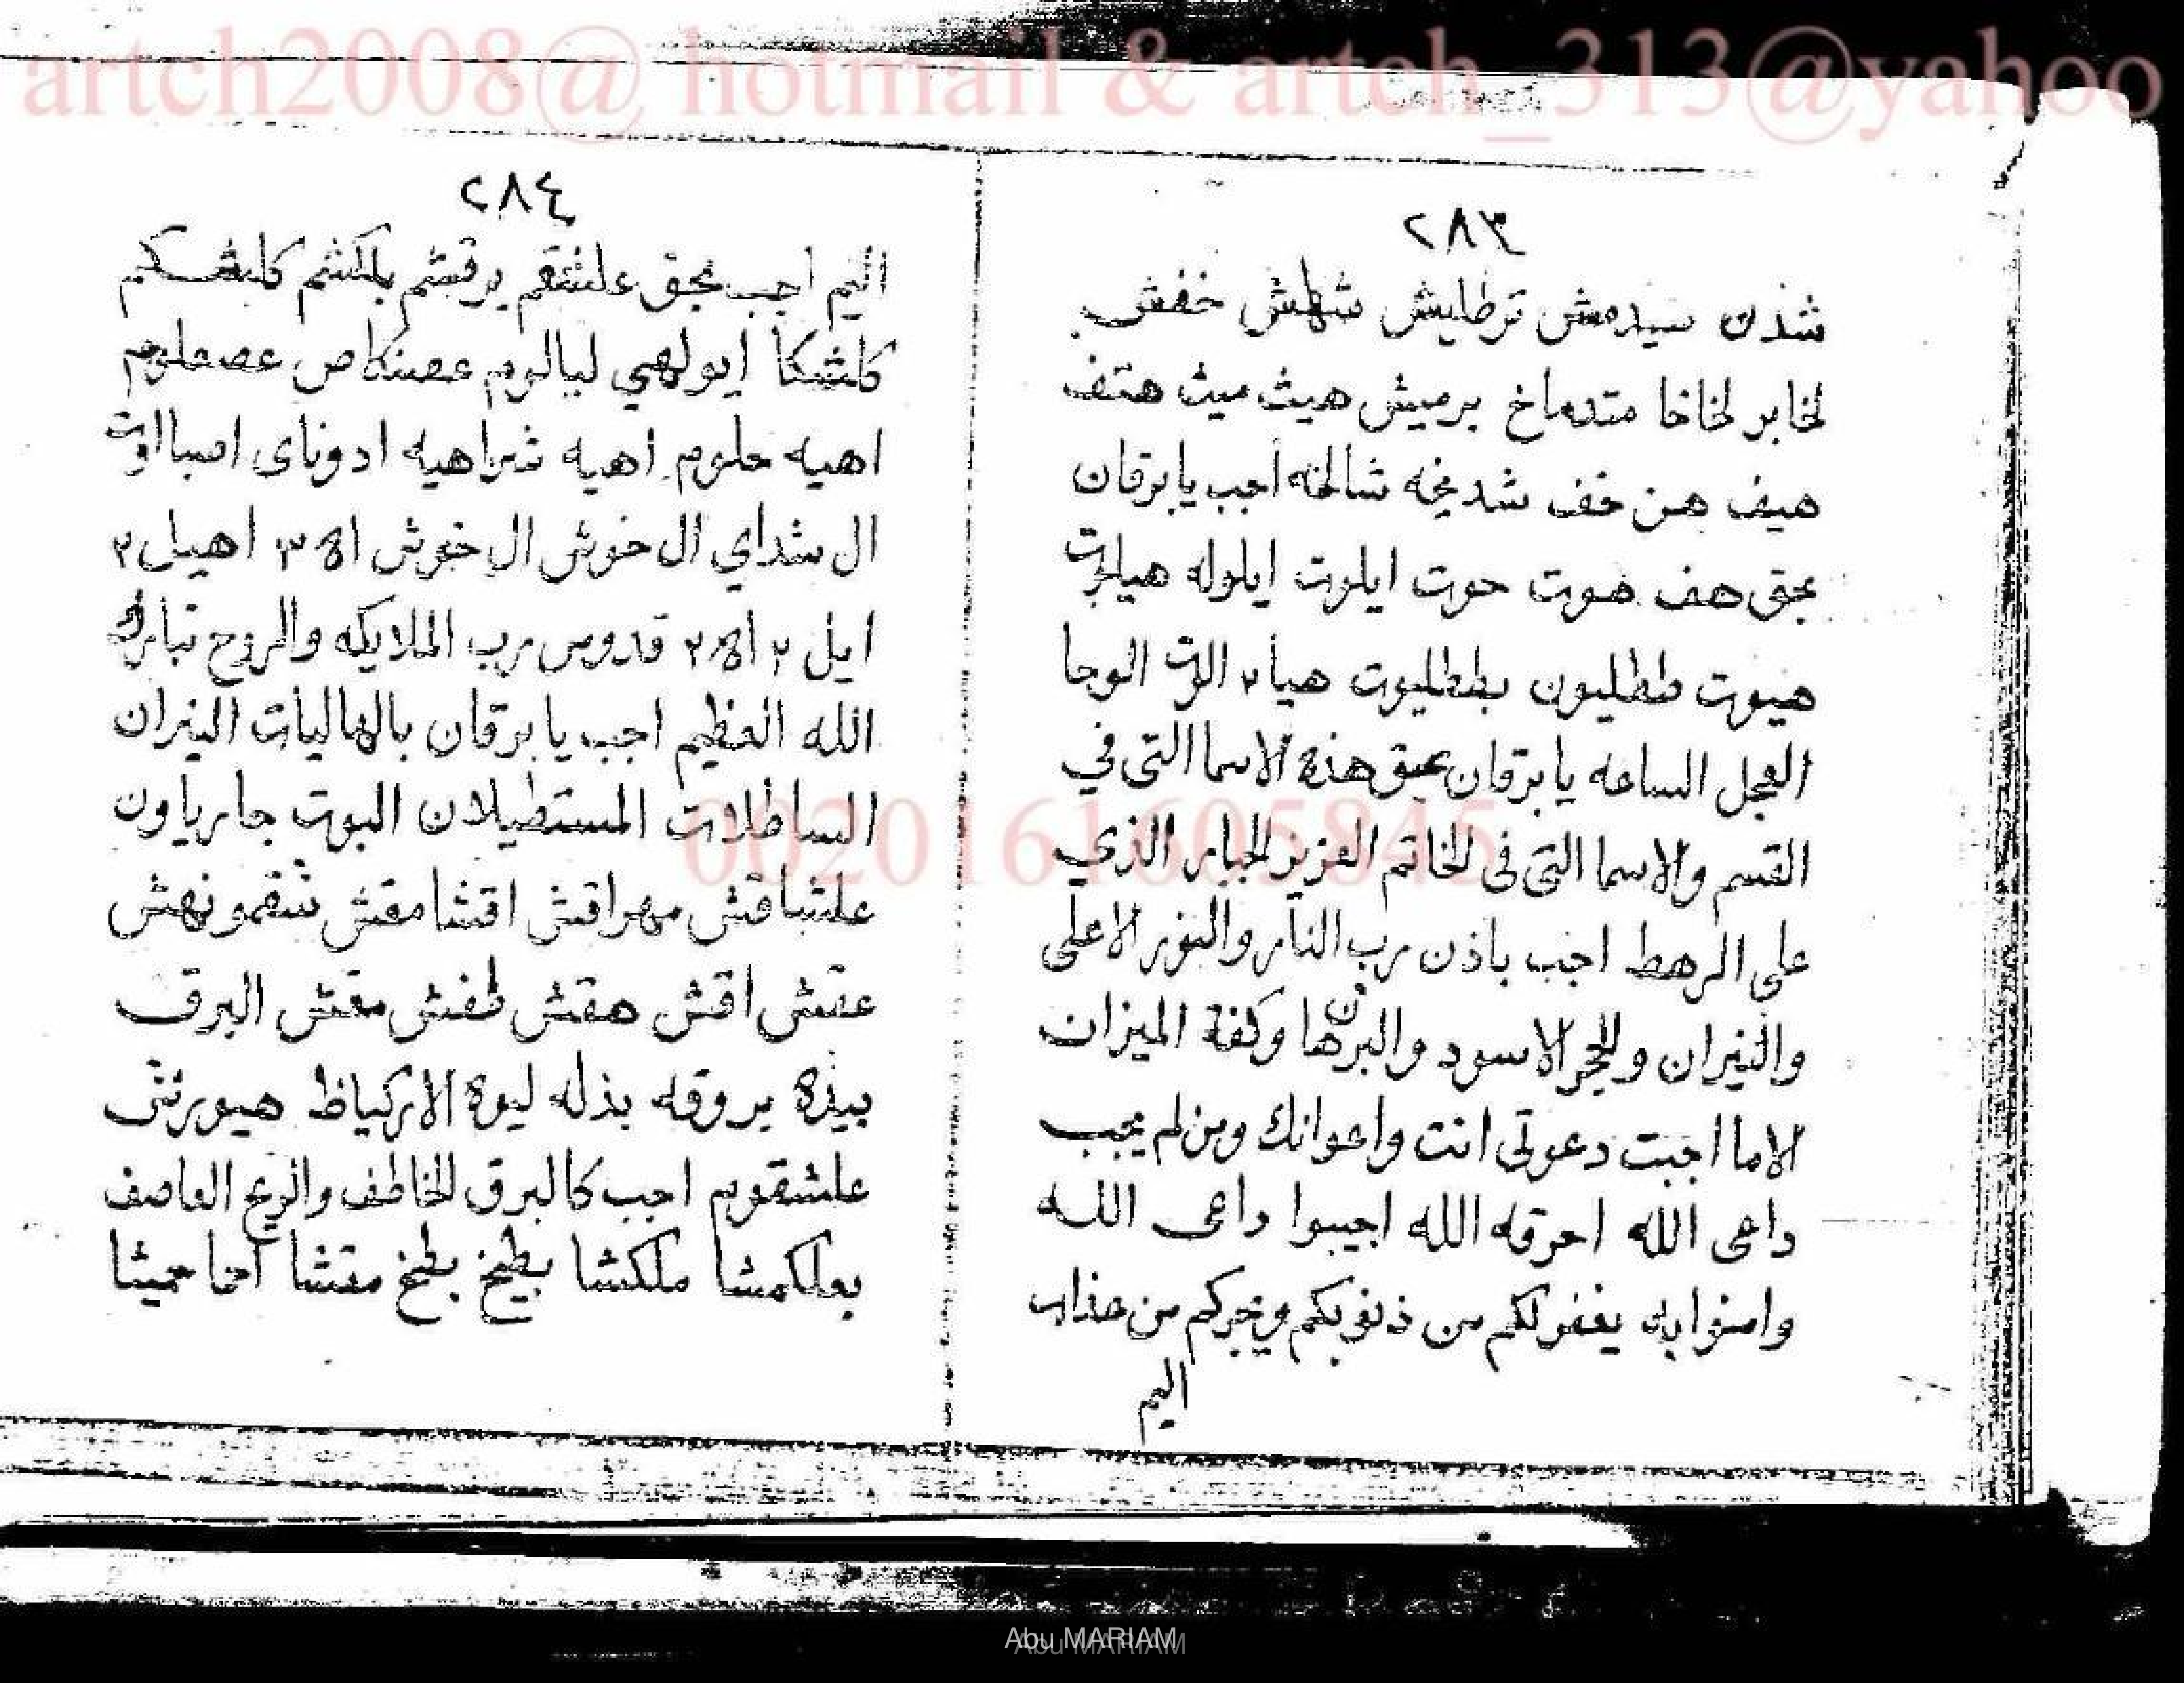 artch2008@ hotmail & artch_313@yahoo
٢٨٣
شذن سيدمش ترطليش شهلش خفش
لخابر لخاخا متدماخ برميش هيث ميث هتف
هيف هن خف شديخه شالخه اجب يا برقان
بحق هف هوت حوت ايلوت ايلوله هيلجت
هيوت ططليون بططليوت هيا٢ الوجا
العجل الساعه يا برقان بحق هذه الاسما التى في
القسم والاسما التى فى الخاتم العزيز الجبار الذي
على الرهط اجب باذن رب النار والنور الاعلى
والنيران والحجر الاسود والبرهان وكفة الميزان
الاما اجبت دعوتى انت واعوانك ومن لم يجب
داعى الله احرقه الله اجيبوا داعى الله
وامنوا به يغفر لكم من ذنوبكم ويجركم من عذاب
اليم
٢٨٤
اليم اجب بحق علشقم برقشم بلكشم كلشكم
كلشكا ايولهي ليالوم عصنكاص عصملوم
اهيه حلوم اهيه شراهيه ادوناى اصبااوت
ال شداي ال خوش ال خوش اه ٣ اهيل ٢
ايل ٢ اه ٢ قدوس رب الملايكه والروح تبارك
الله العظيم اجب يا برقان بالهاليات النيران
الساطلات المستطيلان البوت جارياون
علشاقش مهراقش اقشامقش شقمونهش
عقش اقش هقش طفش مقش البرق
بيذه بروقه بذله ليوة الاركياظ هيورنش
علشقوم اجب كالبرق الخاطف والريح العاصف
بعلكمشا ملكشا بطيخ بطخ مقشا
0020161605845
Abu MARIAM